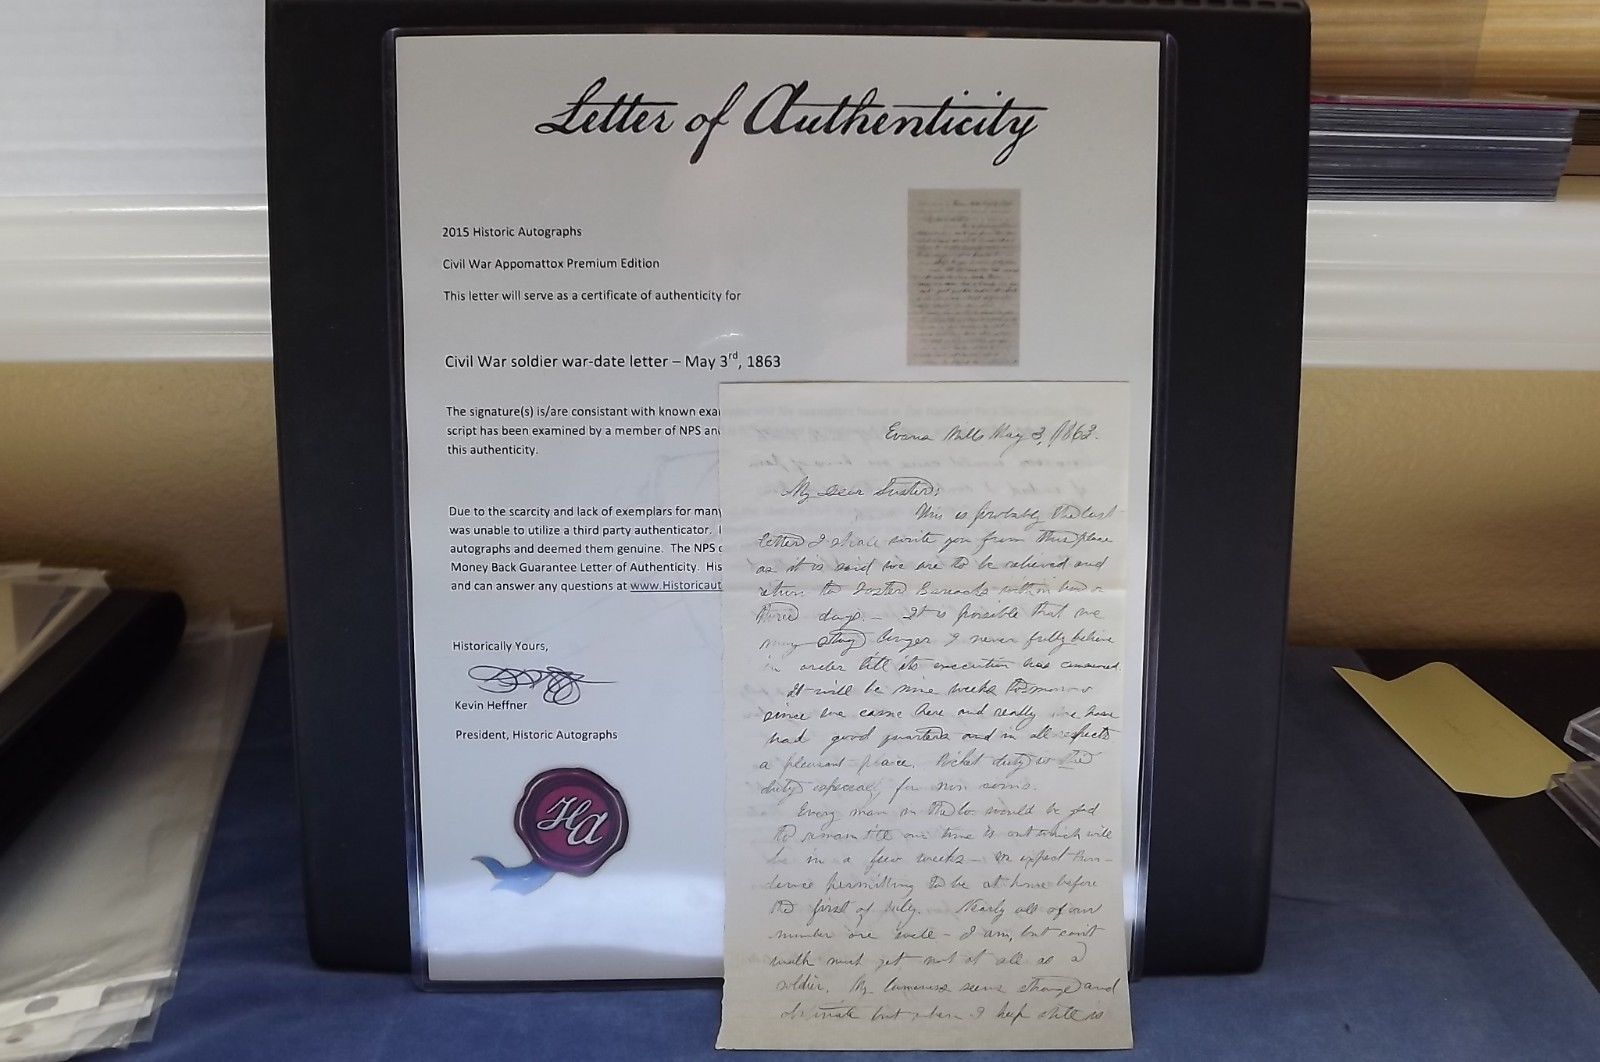 Letter of Authenticity
2015 Historic Autographs
Civil War Appomattox Premium Edition
This letter will serve as a certificate of authenticity for
Civil War soldier war-date letter – May 3rd, 1863
The signature(s) is/are consistent with known exa
script has been examined by a member of NPS and
this authenticity.
Due to the scarcity and lack of exemplars for many
was unable to utilize a third party authenticator.
autographs and deemed them genuine. The NPS
Money Back Guarantee Letter of Authenticity. His
and can answer any questions at www.Historicaut
Historically Yours,
Kevin Heffner
President, Historic Autographs
HA
Evans Mills May 3, 1863.
My Dear Sister:
This is probably the last
letter I shall write you from this place
as it is said we are to be relieved and
return to Foster Barracks within two or
three days. — It is possible that we
may stay longer I never fully believe
in order till its execution has commenced.
It will be nine weeks tomorrow
since we came here and really we have
had good quarters and in all respects
a pleasant place. Picket duty is the
duty especially for non coms.
Every man in the Co. would be glad
to remain till our time is out which will
be in a few weeks — We expect Prov-
idence permitting to be at home before
the first of July. Nearly all of our
number are well — I am, but can't
walk much yet not at all as a
soldier. My lameness seems strange and
obstinate but when I keep still is